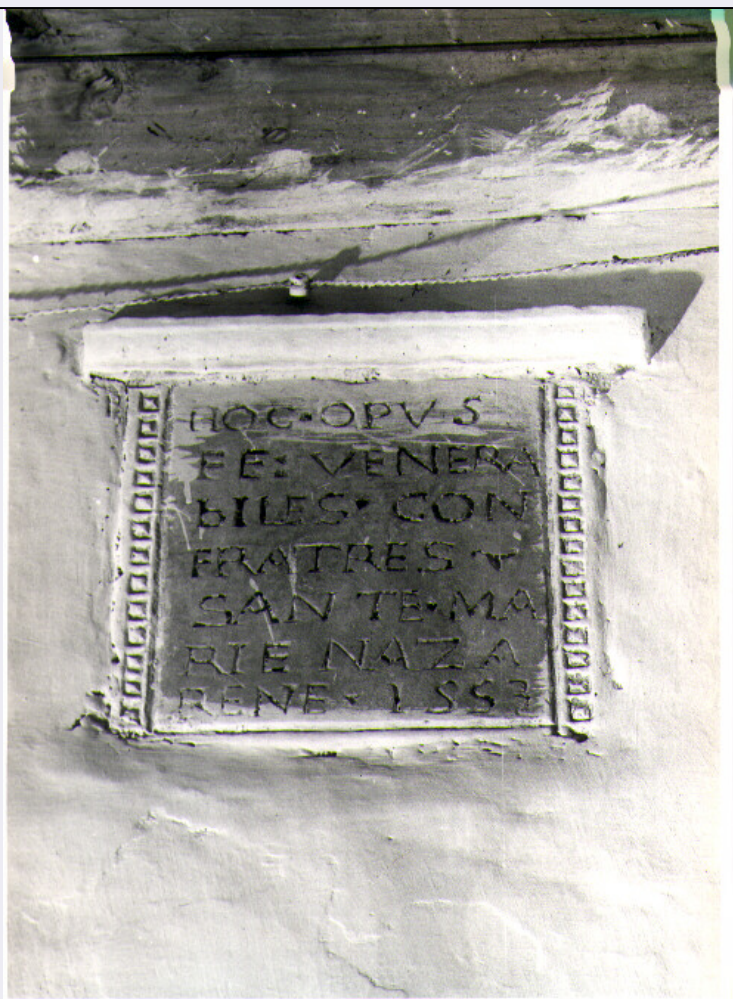 HOC·OPVS
FE: VENERA
BILES· CON
FRATRES ·
SANTE·MA
RIE NAZA
RENE · 1553